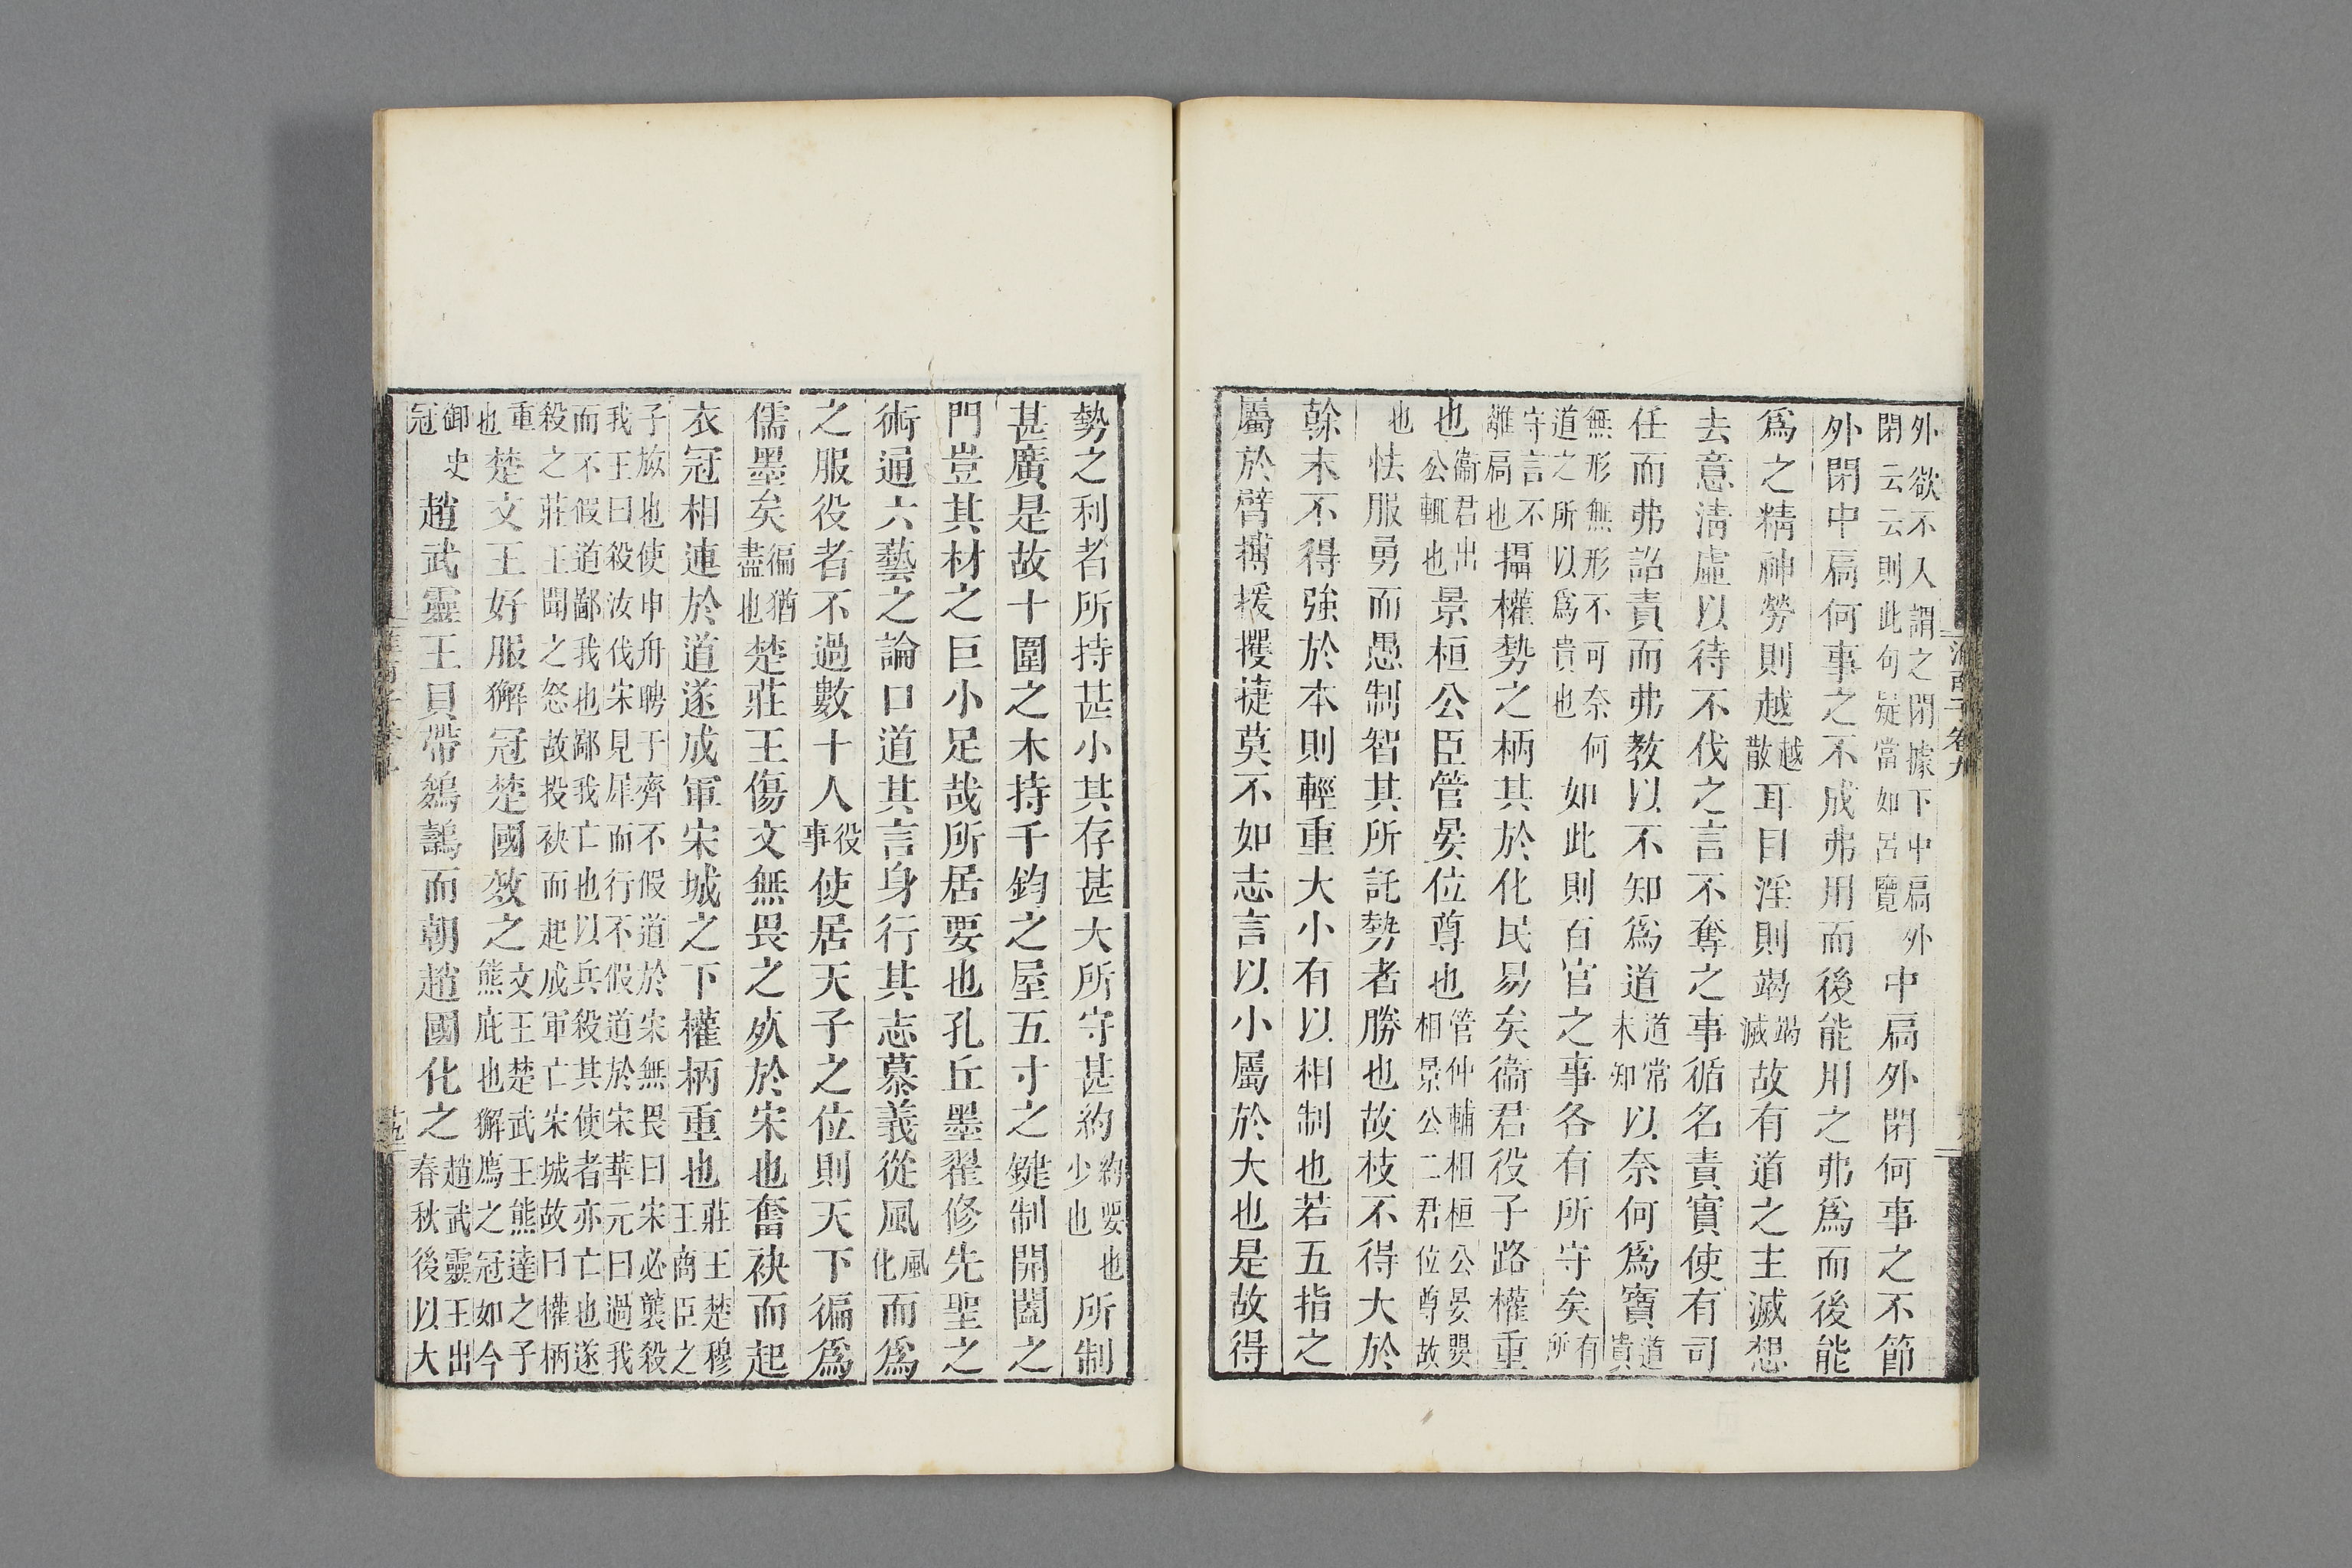 外欲不入謂之閉據下中扃外閉云云則此句疑當如呂覽中扃外閉何事之不節
外閉中扃何事之不成弗用而後能用之弗爲而後能
爲之精神勞則越越散耳目淫則竭竭滅故有道之主滅想
去意清虛以待不伐之言不奪之事循名責實使有司
任而弗詔責而弗教以不知爲道道常未知以奈何爲寶道貴
無形無形不可奈何道之所以爲貴也如此則百官之事各有所守矣有所
守言不不離扃也攝權勢之柄其於化民易矣衞君役子路權重
也衞君出公輒也景桓公臣管晏位尊也管仲輔相桓公晏嬰相景公二君位尊故
也怯服勇而愚制智其所託勢者勝也故枝不得大於
榦末不得強於本則輕重大小有以相制也若五指之
屬於臂搏援攫捷莫不如志言以小屬於大也是故得
淮南子卷九
勢之利者所持甚小其存甚大所守甚約約要也少也所制
甚廣是故十圍之木持千鈞之屋五寸之鍵制開闔之
門豈其材之巨小足哉所居要也孔丘墨翟修先聖之
術通六藝之論口道其言身行其志慕義從風風化而爲
之服役者不過數十人役事使居天子之位則天下徧爲
儒墨矣徧猶盡也楚莊王傷文無畏之死於宋也奮袂而起
衣冠相連於道遂成軍宋城之下權柄重也莊王楚穆王商臣之
子旅也使申舟聘于齊不假道於宋無畏曰宋必襲殺我王曰殺汝伐宋見犀而行不假道於宋華元曰過我
而不假道鄙我也鄙我亡也以兵殺其使者亦亡也遂殺之莊王聞之怒故投袂而起成軍亡宋城故曰權柄
重也楚文王好服獬冠楚國效之文王楚武王熊達之子熊庛也獬廌之冠如今
御史冠趙武靈王貝帶而朝趙國化之趙武靈王出春秋後以大